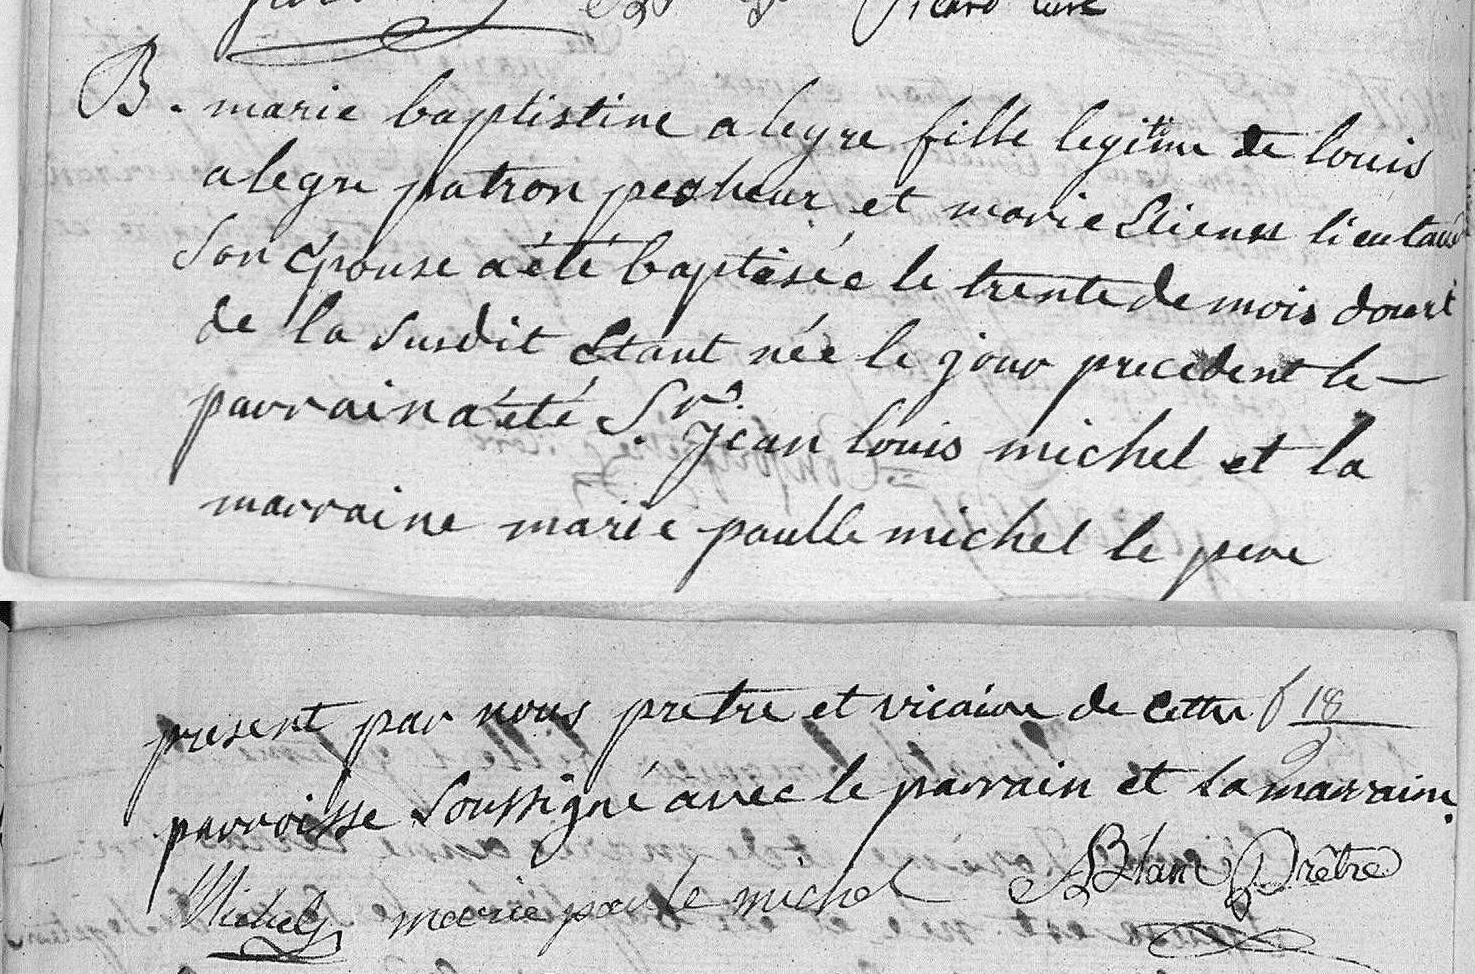 Picard curé
B. marie baptistine alegre fille legitime de louis
alegre patron pecheur et marie Etienne lieutaud
son épouse a été baptisée le trente de mois d'oust
de la susdit étant née le jour precedent le
parrain a été Sr. jean louis michel et la
marraine marie paulle michel le pere
present par nous pretre et vicaire de cette f 18
parroisse soussigné avec le parrain et la marraine.
Michel marie paule michel Blanc Prêtre